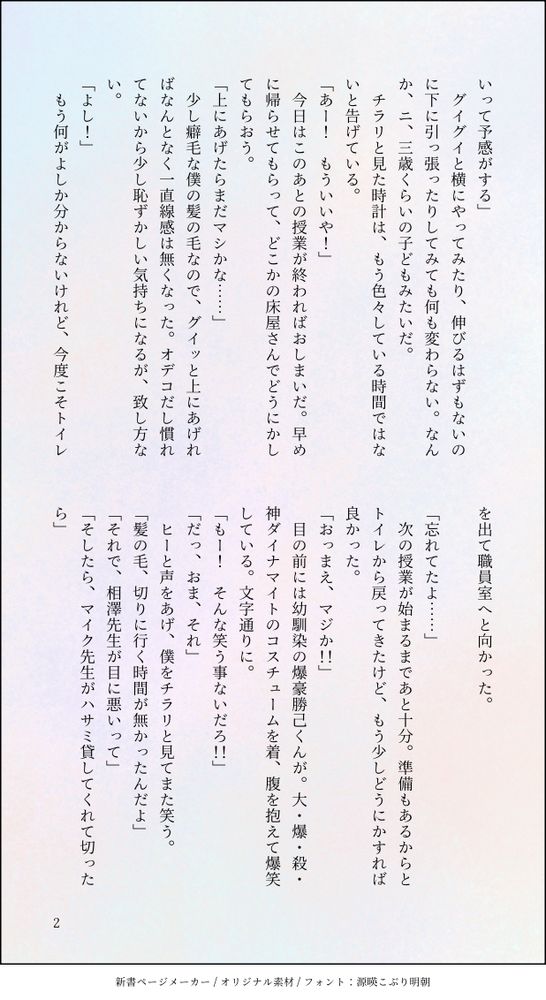 いって予感がする」
　グイグイと横にやってみたり、伸びるはずもないの
に下に引っ張ったりしてみても何も変わらない。なん
か、ニ、三歳くらいの子どもみたいだ。
　チラリと見た時計は、もう色々している時間ではな
いと告げている。
「あー！　もういいや！」
　今日はこのあとの授業が終わればおしまいだ。早め
に帰らせてもらって、どこかの床屋さんでどうにかし
てもらおう。
「上にあげたらまだマシかな……」
　少し癖毛な僕の髪の毛なので、グイッと上にあげれ
ばなんとなく一直線感は無くなった。オデコだし慣れ
てないから少し恥ずかしい気持ちになるが、致し方な
い。
「よし！」
　もう何がよしか分からないけれど、今度こそトイレ
を出て職員室へと向かった。
「忘れてたよ……」
　次の授業が始まるまであと十分。準備もあるからと
トイレから戻ってきたけど、もう少しどうにかすれば
良かった。
「おっまえ、マジか!!」
　目の前には幼馴染の爆豪勝己くんが。大・爆・殺・
神ダイナマイトのコスチュームを着、腹を抱えて爆笑
している。文字通りに。
「もー！　そんな笑う事ないだろ!!」
「だっ、おま、それ」
　ヒーと声をあげ、僕をチラリと見てまた笑う。
「髪の毛、切りに行く時間が無かったんだよ」
「それで、相澤先生が目に悪いって」
「そしたら、マイク先生がハサミ貸してくれて切った
ら」
2
新書ページメーカー / オリジナル素材 / フォント：源暎こぶり明朝